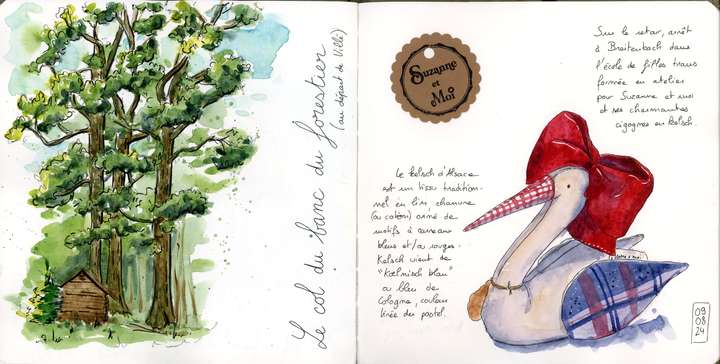 Le col du banc du forestier
(au départ de Villé)
Suzanne
et
Moi
Sur le retour, arrêt
à Breitenbach dans
l'école de filles trans
formée en atelier
par Suzanne et moi
et ses charmantes
cigognes en kelsch.
Le kelsch d'Alsace
est un tissu tradition-
nel en lin, chanvre
(ou coton) orné de
motifs à carreaux
bleus et/ou rouges.
Kelsch vient de
"Kœlnisch blau"
ou bleu de
Cologne, couleur
tirée du pastel.
09
08
24